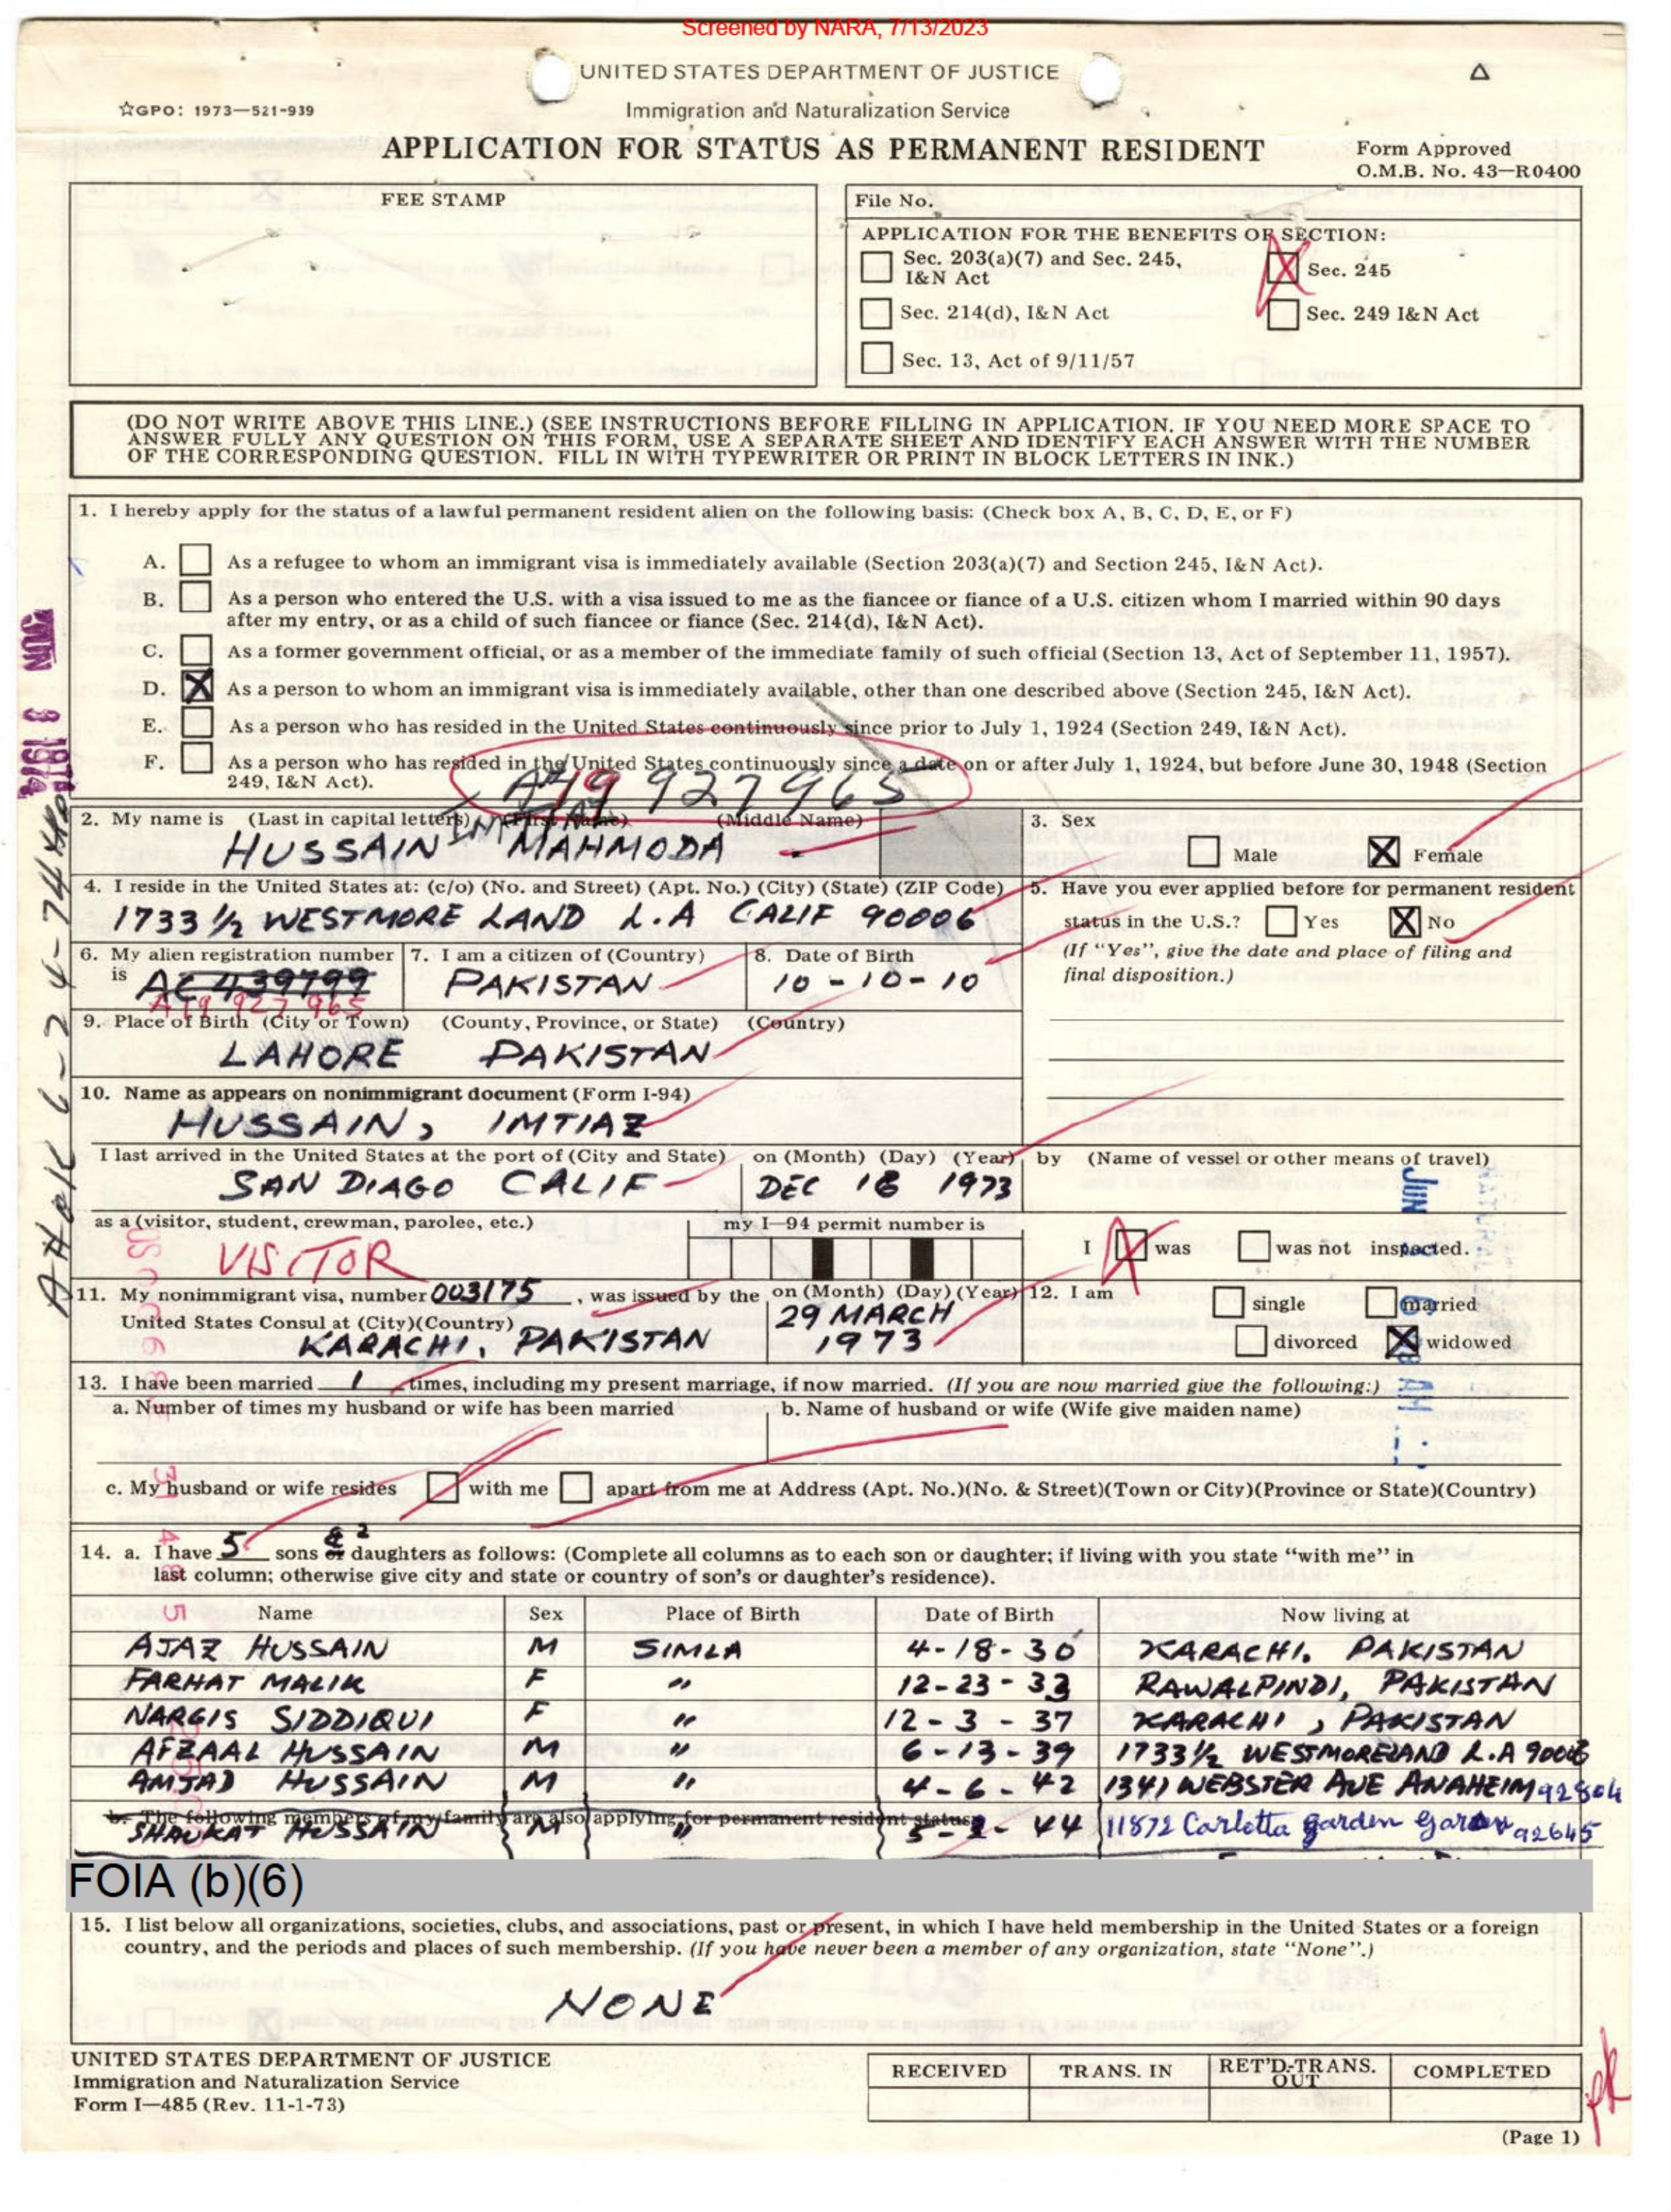 Screened by NARA, 7/13/2023
UNITED STATES DEPARTMENT OF JUSTICE
☆GPO: 1973—521-939
Immigration and Naturalization Service
APPLICATION FOR STATUS AS PERMANENT RESIDENT
Form Approved
O.M.B. No. 43—R0400
FEE STAMP
File No.
APPLICATION FOR THE BENEFITS OF SECTION:
Sec. 203(a)(7) and Sec. 245, I&N Act
Sec. 245
Sec. 214(d), I&N Act
Sec. 249 I&N Act
Sec. 13, Act of 9/11/57
(DO NOT WRITE ABOVE THIS LINE.) (SEE INSTRUCTIONS BEFORE FILLING IN APPLICATION. IF YOU NEED MORE SPACE TO
ANSWER FULLY ANY QUESTION ON THIS FORM, USE A SEPARATE SHEET AND IDENTIFY EACH ANSWER WITH THE NUMBER
OF THE CORRESPONDING QUESTION. FILL IN WITH TYPEWRITER OR PRINT IN BLOCK LETTERS IN INK.)
1. I hereby apply for the status of a lawful permanent resident alien on the following basis: (Check box A, B, C, D, E, or F)
A. As a refugee to whom an immigrant visa is immediately available (Section 203(a)(7) and Section 245, I&N Act).
B. As a person who entered the U.S. with a visa issued to me as the fiancee or fiance of a U.S. citizen whom I married within 90 days
after my entry, or as a child of such fiancee or fiance (Sec. 214(d), I&N Act).
C. As a former government official, or as a member of the immediate family of such official (Section 13, Act of September 11, 1957).
D. X As a person to whom an immigrant visa is immediately available, other than one described above (Section 245, I&N Act).
E. As a person who has resided in the United States continuously since prior to July 1, 1924 (Section 249, I&N Act).
F. As a person who has resided in the United States continuously since a date on or after July 1, 1924, but before June 30, 1948 (Section
249, I&N Act).
A19 927965
2. My name is (Last in capital letters) (First Name) (Middle Name)
HUSSAIN IMTIAZ MAHMODA
3. Sex
Male X Female
4. I reside in the United States at: (c/o) (No. and Street) (Apt. No.) (City) (State) (ZIP Code)
1733 ½ WESTMORE LAND L.A CALIF 90006
5. Have you ever applied before for permanent resident
status in the U.S.? Yes X No
(If "Yes", give the date and place of filing and
final disposition.)
6. My alien registration number
is AC 439799
A19 927 965
7. I am a citizen of (Country)
PAKISTAN
8. Date of Birth
10-10-10
9. Place of Birth (City or Town) (County, Province, or State) (Country)
LAHORE PAKISTAN
10. Name as appears on nonimmigrant document (Form I-94)
HUSSAIN, IMTIAZ
I last arrived in the United States at the port of (City and State)
SAN DIAGO CALIF
on (Month) (Day) (Year)
DEC 16 1973
by (Name of vessel or other means of travel)
as a (visitor, student, crewman, parolee, etc.)
VISITOR
my I—94 permit number is
I X was was not inspected.
11. My nonimmigrant visa, number 003175, was issued by the
United States Consul at (City)(Country)
KARACHI, PAKISTAN
on (Month) (Day) (Year)
29 MARCH
1973
12. I am
single married
divorced X widowed
13. I have been married 1 times, including my present marriage, if now married. (If you are now married give the following:)
a. Number of times my husband or wife has been married
b. Name of husband or wife (Wife give maiden name)
c. My husband or wife resides with me apart from me at Address (Apt. No.)(No. & Street)(Town or City)(Province or State)(Country)
14. a. I have 5 sons or & 2 daughters as follows: (Complete all columns as to each son or daughter; if living with you state "with me" in
last column; otherwise give city and state or country of son's or daughter's residence).
Name Sex Place of Birth Date of Birth Now living at
AJAZ HUSSAIN M SIMLA 4-18-30 KARACHI. PAKISTAN
FARHAT MALIK F " 12-23-33 RAWALPINDI, PAKISTAN
NARGIS SIDDIQUI F " 12-3-37 KARACHI, PAKISTAN
AFZAAL HUSSAIN M " 6-13-39 1733½ WESTMORELAND L.A 90006
AMJAD HUSSAIN M " 4-6-42 1341 WEBSTER AVE ANAHEIM 92804
b. The following members of my family are also applying for permanent resident status:
SHAUKAT HUSSAIN M " 5-2-44 11872 Carlotta garden Garden 92645
FOIA (b)(6)
15. I list below all organizations, societies, clubs, and associations, past or present, in which I have held membership in the United States or a foreign
country, and the periods and places of such membership. (If you have never been a member of any organization, state "None".)
NONE
UNITED STATES DEPARTMENT OF JUSTICE
Immigration and Naturalization Service
Form I—485 (Rev. 11-1-73)
RECEIVED TRANS. IN RET'D-TRANS. OUT COMPLETED
(Page 1)